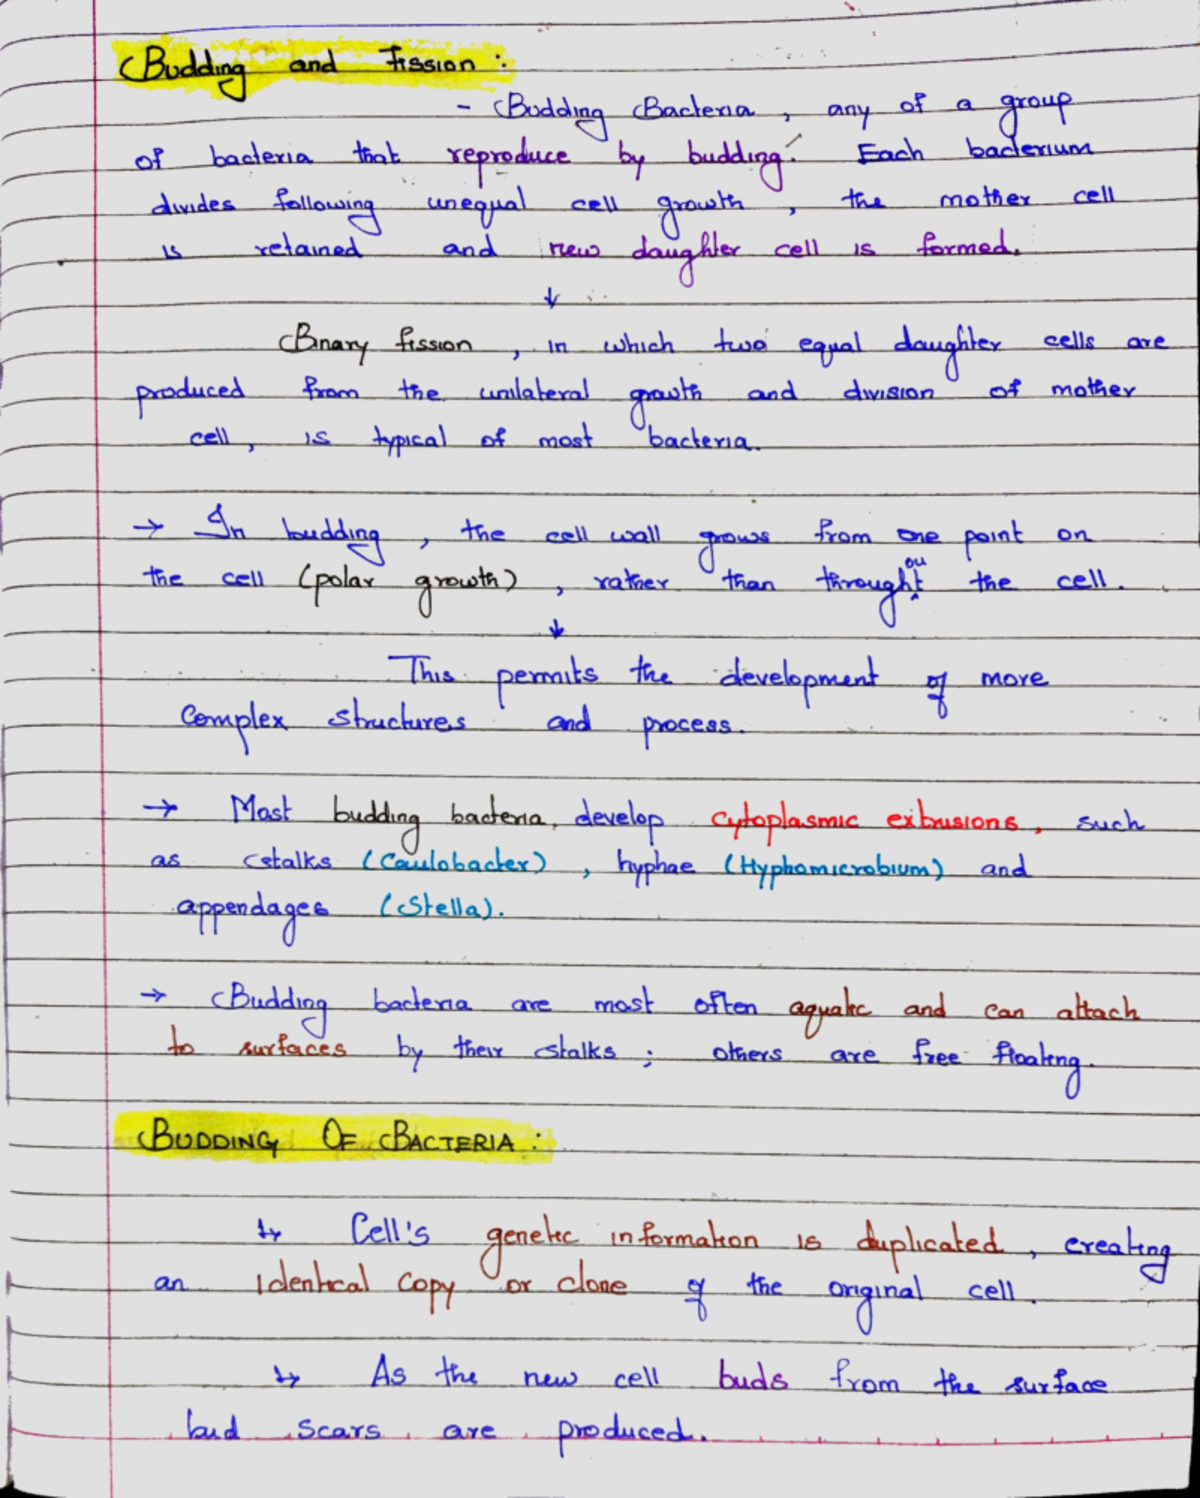 Budding and Fission :
- Budding Bacteria , any of a group
of bacteria that reproduce by budding. Each bacterium
divides following unequal cell growth , the mother cell
is retained and new daughter cell is formed.
↓
Binary fission , in which two equal daughter cells are
produced from the unilateral growth and division of mother
cell , is typical of most bacteria.
→ In budding , the cell wall grows from one point on
the cell (polar growth) , rather than throughout the cell .
↓
This permits the development of more
Complex structures and process.
→ Most budding bacteria, develop cytoplasmic extrusions, such
as stalks (Caulobacter) , hyphae (Hyphomicrobium) and
appendages (Stella).
→ Budding bacteria are most often aquatic and can attach
to surfaces by their stalks ; others are free floating.
BUDDING OF BACTERIA :
↳ Cell's genetic information is duplicated , creating
an identical copy or clone of the original cell .
↳ As the new cell buds from the surface
bud scars are produced.